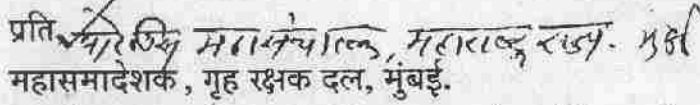 प्रति, पोलिस महासंचालक, महाराष्ट्र राज्य. मुंबई
महासमादेशक, गृह रक्षक दल, मुंबई.